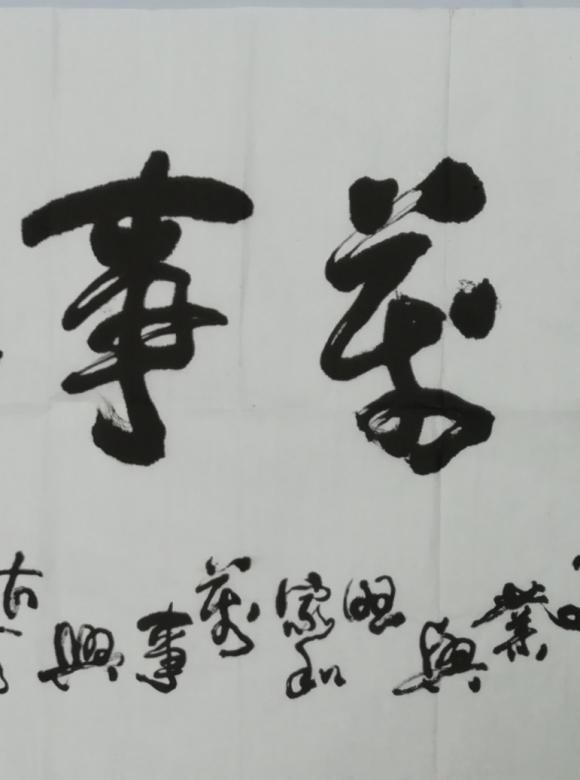 萬事
業興
家和
萬事興